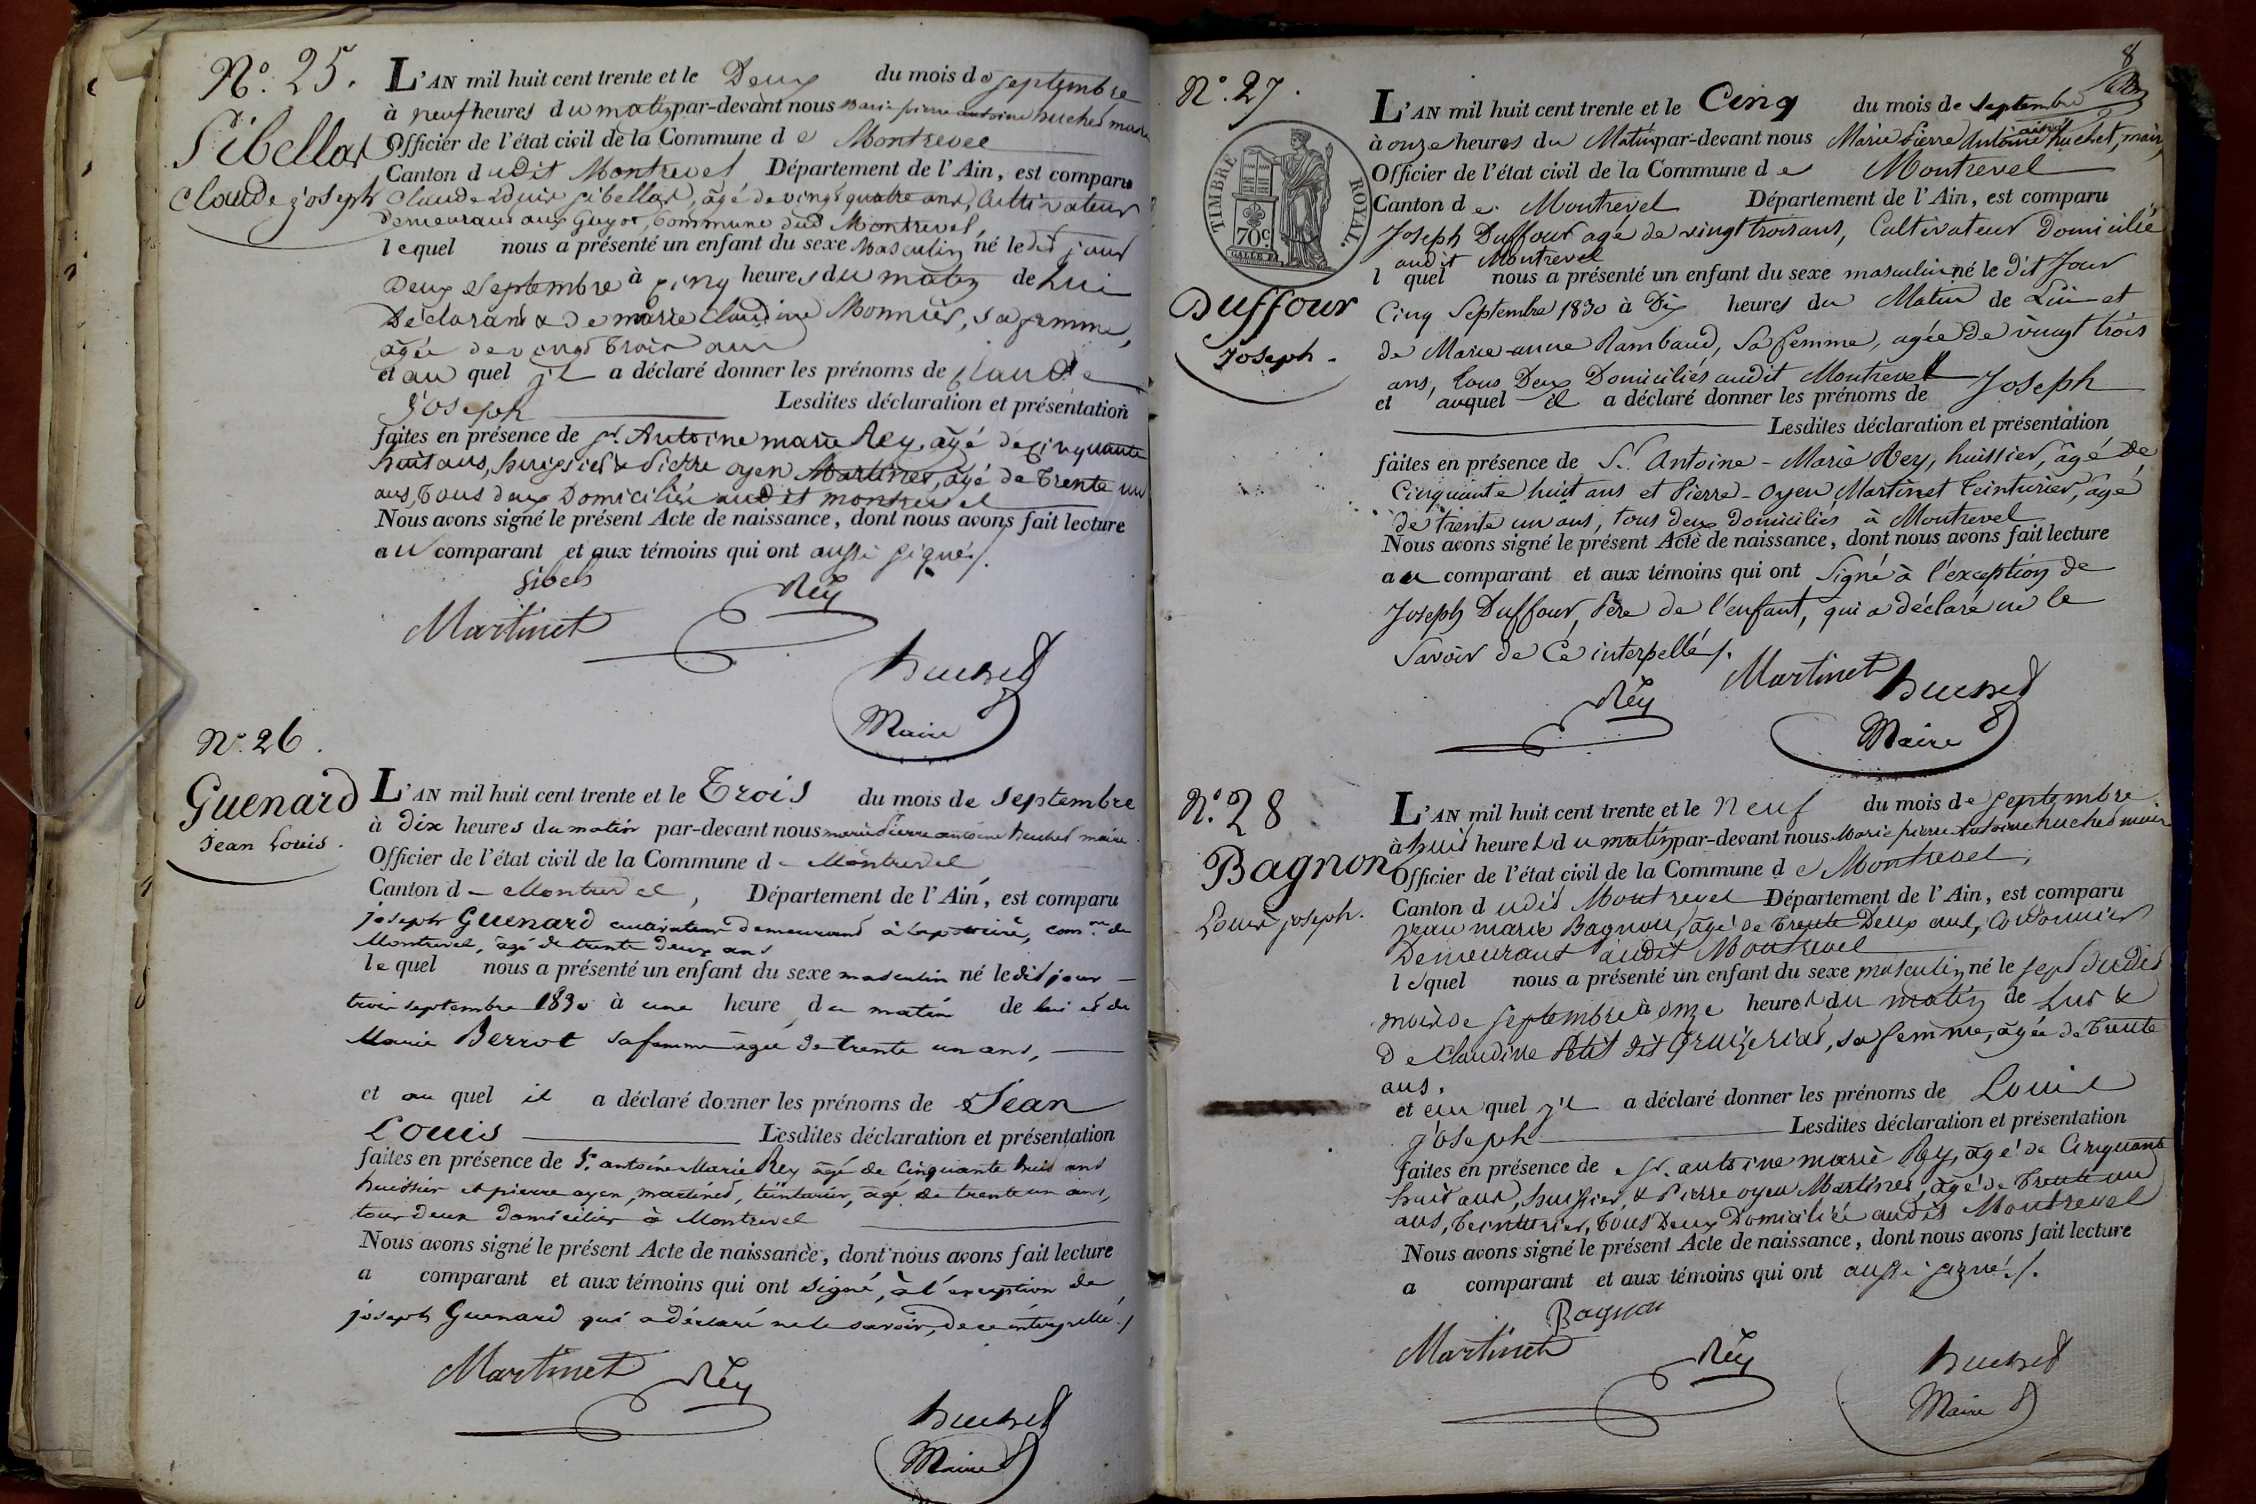 N.° 25.
Sibellas
Claude joseph
L'AN mil huit cent trente et le Deux du mois de septembre
à neuf heures du matin par-devant nous Marie pierre antoine huchet maire
Officier de l'état civil de la Commune de Montrevel
Canton dudit Montrevel Département de l'Ain, est comparu
Claude Sibellas, âgé de vingt quatre ans, Cultivateur
demeurant aux Guyot, Commune dud Montrevel,
lequel nous a présenté un enfant du sexe Masculin né ledit jour
Deux Septembre à cinq heures du matin de Lui
Déclarant & de marie Claudine Monnier, sa femme,
âgée de vingt trois ans
et au quel il a déclaré donner les prénoms de Claude
joseph Lesdites déclaration et présentation
faites en présence de Sr. Antoine marie Rey, âgé de Cinquante
huit ans, huissier & Pierre oyen Martinet, âgé de Trente un
ans, Tous deux Domiciliés audit montrevel
Nous avons signé le présent Acte de naissance, dont nous avons fait lecture
au comparant et aux témoins qui ont aussi signé ./.
Sibels
Martinet Rey
huchet
Maire
N.° 26.
Guenard
Jean Louis.
L'AN mil huit cent trente et le Trois du mois de septembre
à dix heures du matin par-devant nous marie Pierre antoine huchet maire
Officier de l'état civil de la Commune de Montrevel
Canton de Montrevel, Département de l'Ain, est comparu
joseph Guenard cultivateur demeurant à com.ne de
Montrevel, âgé de trente deux ans
lequel nous a présenté un enfant du sexe masculin né ledit jour
trois septembre 1830 à une heure du matin de lui et de
Marie Berrot sa femme agée de trente un ans,
et au quel il a déclaré donner les prénoms de Jean
Louis Lesdites déclaration et présentation
faites en présence de Sr. antoine Marie Rey âgé de cinquante huit ans
huissier et pierre oyen martinet, teinturier, âgé de trente un ans,
tous deux domiciliés à Montrevel
Nous avons signé le présent Acte de naissance, dont nous avons fait lecture
a comparant et aux témoins qui ont signé, à l'exception de
joseph Guenard qui a déclaré ne le savoir, de ce interpellé ./
Martinet Rey
huchet
Maire
8
N.° 27.
TIMBRE ROYAL.
70c
Duffour
Joseph.
L'AN mil huit cent trente et le Cinq du mois de Septembre
à onze heures du Matin par-devant nous Marie Pierre Antoine huchet, maire
Officier de l'état civil de la Commune de Montrevel
Canton de Montrevel Département de l'Ain, est comparu
Joseph Duffour agé de vingt trois ans, Cultivateur domicilié
audit Montrevel
l quel nous a présenté un enfant du sexe masculin né le dit Jour
Cinq Septembre 1830 à Dix heures du Matin de Lui et
de Marie anne Rambaud, sa femme, agée de vingt trois
ans, tous Deux Domiciliés audit Montrevel
et auquel il a déclaré donner les prénoms de Joseph
Lesdites déclaration et présentation
faites en présence de S. Antoine-Marie Rey, huissier, âgé de
Cinquante huit ans et Pierre-Oyen Martinet Teinturier, âgé
de trente un ans, tous deux domiciliés à Montrevel
Nous avons signé le présent Acte de naissance, dont nous avons fait lecture
au comparant et aux témoins qui ont signé à l'exception de
Joseph Duffour, Père de l'enfant, qui a déclaré ne le
savoir de Ce interpellé ./.
Martinet huchet
Rey Maire
N.° 28
Bagnon
Louis joseph.
L'AN mil huit cent trente et le neuf du mois de septembre
à huit heures du matin par-devant nous Marie pierre antoine huchet maire
Officier de l'état civil de la Commune de Montrevel,
Canton dudit Montrevel Département de l'Ain, est comparu
jean marie Bagnon, âgé de trente Deux ans, Cordonnier
Demeurant audit Montrevel
lequel nous a présenté un enfant du sexe masculin né le sept dudit
mois de septembre à onze heures du matin de Lui &
de Claudine Petit dit , sa femme, âgée de Trente
ans.
et au quel il a déclaré donner les prénoms de Louis
joseph Lesdites déclaration et présentation
faites en présence de Sr. antoine marie Rey, âgé de Cinquante
huit ans, huissier, & Pierre oyen Martinet, âgé de Trente un
ans, Teinturier, Tous Deux Domiciliés audit Montrevel
Nous avons signé le présent Acte de naissance, dont nous avons fait lecture
a comparant et aux témoins qui ont aussi signé ./.
Bagnon
Martinet Rey huchet
Maire